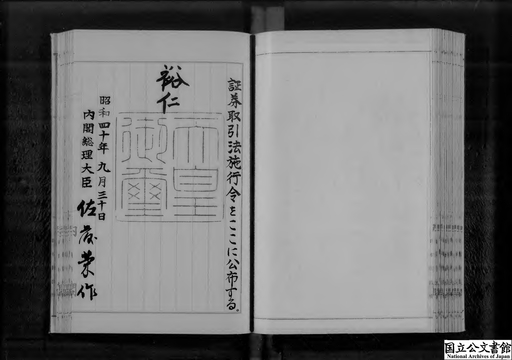 証券取引法施行令をここに公布する。
裕仁
天皇
御璽
昭和四十年九月三十日
内閣総理大臣 佐藤栄作
国立公文書館
National Archives of Japan